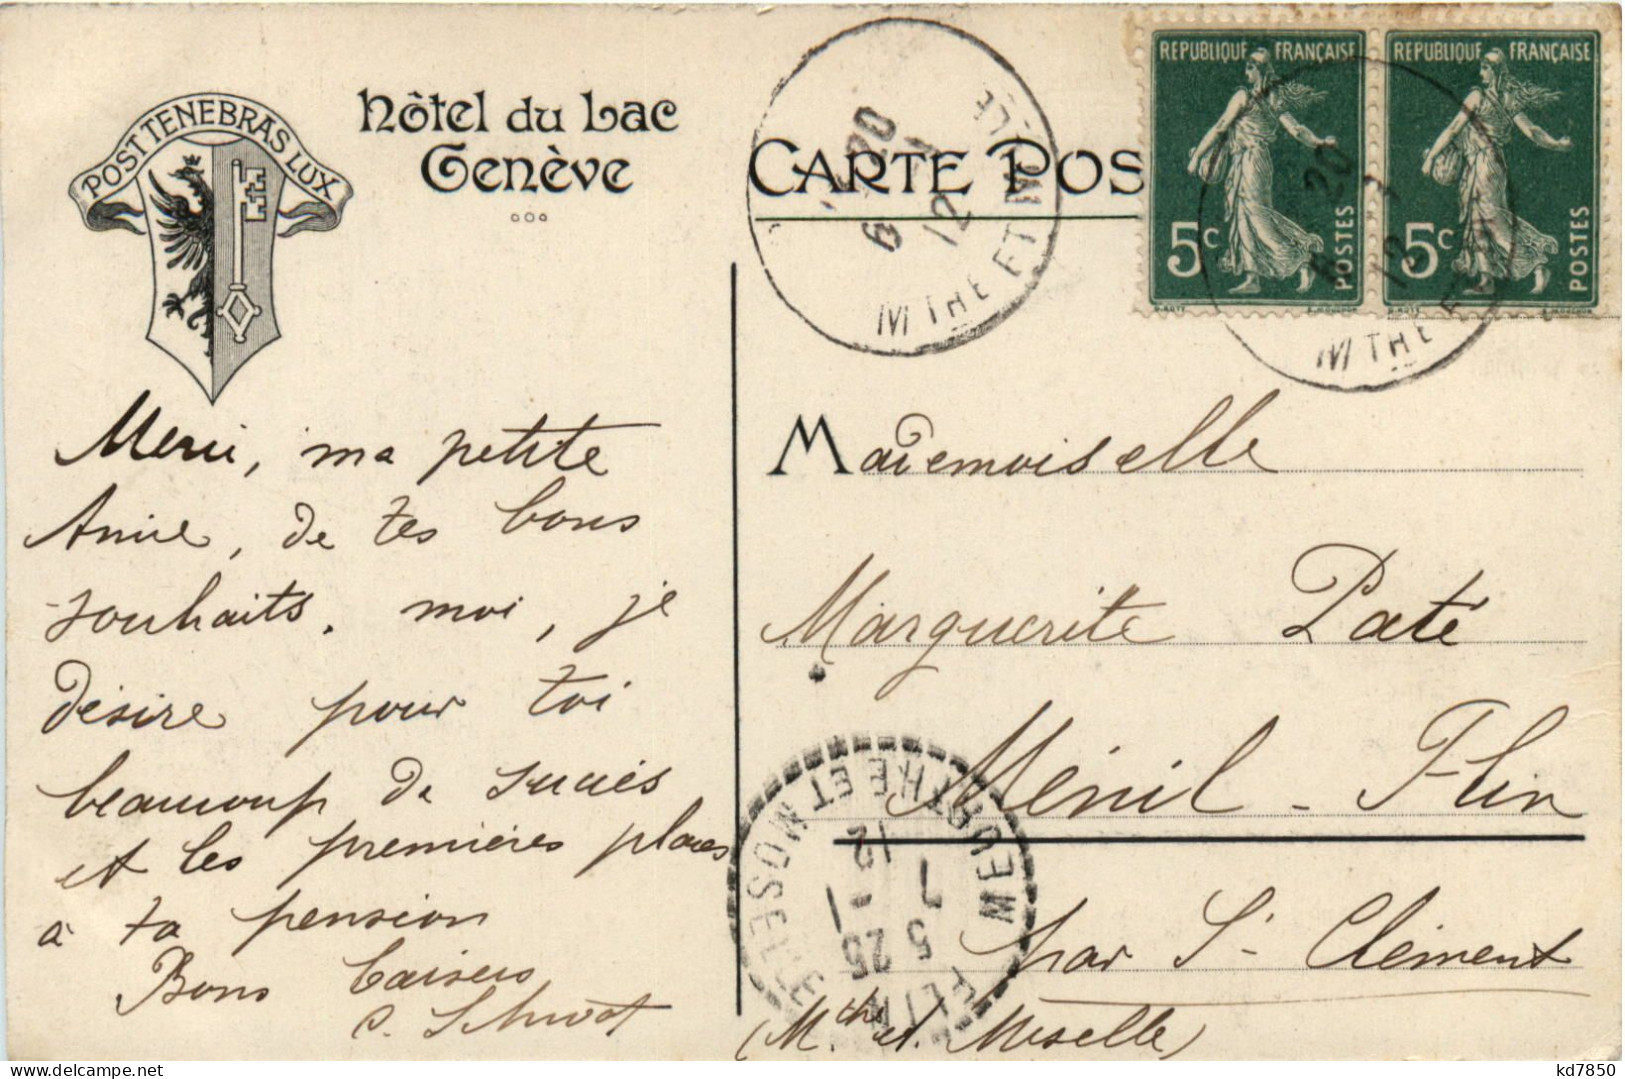 POST TENEBRAS LUX
Hôtel du Lac
Genève
CARTE POS
REPUBLIQUE FRANÇAISE
5c
POSTES
REPUBLIQUE FRANÇAISE
5c
POSTES
6 20
12
MTHE ET MLLE
20
12
MTHE ET
Merci, ma petite
Amie, de tes bons
souhaits. moi, je
désire pour toi
beaucoup de succès
et les premières places
à ta pension
Bons baisers
Mademoiselle
Marguerite Paté
Ménil-Flin
par St Clément
(Mthe et Moselle)
FLIN MEURTHE ET MOSELLE
5 25
7 - 1
12
kd7850